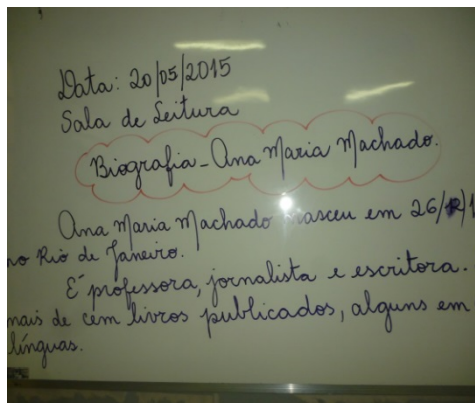 Data: 20/05/2015
Sala de Leitura
Biografia - Ana Maria Machado.
Ana Maria Machado nasceu em 26/
no Rio de Janeiro.
É professora, jornalista e escritora.
mais de cem livros publicados, alguns em
línguas.